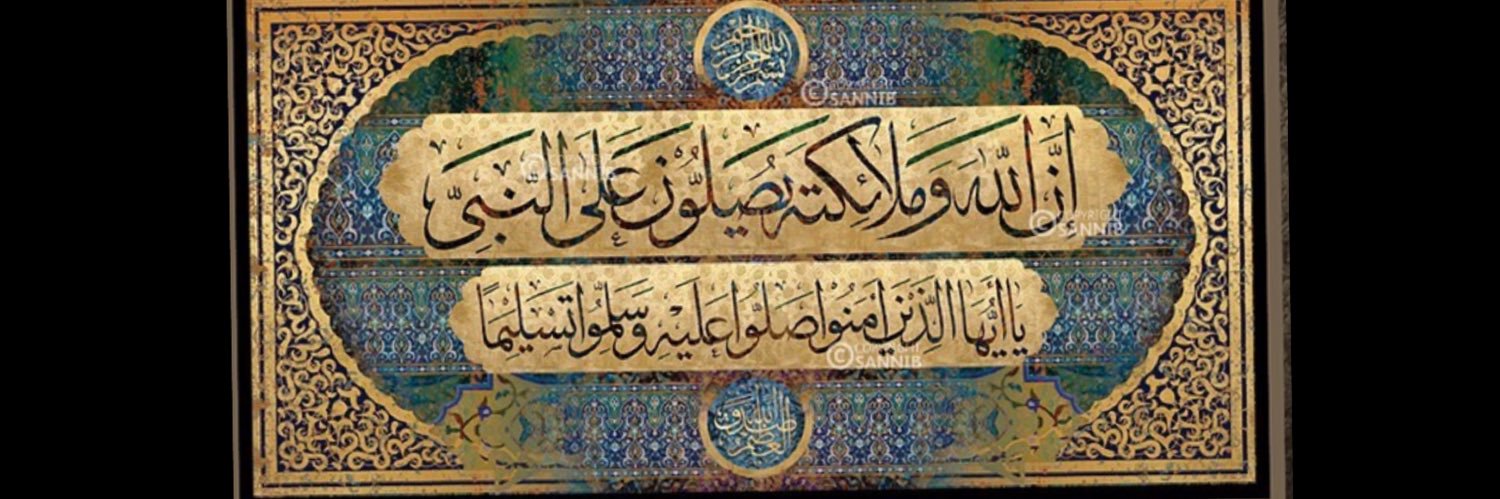 بسم الله الرحمن الرحيم
© COPYRIGHT SANNIB
إِنَّ اللهَ وَمَلَائِكَتَهُ يُصَلُّونَ عَلَى النَّبِيِّ
© COPYRIGHT SANNIB
© COPYRIGHT SANNIB
يَا أَيُّهَا الَّذِينَ آمَنُوا صَلُّوا عَلَيْهِ وَسَلِّمُوا تَسْلِيمًا
© COPYRIGHT SANNIB
صدق الله العظيم